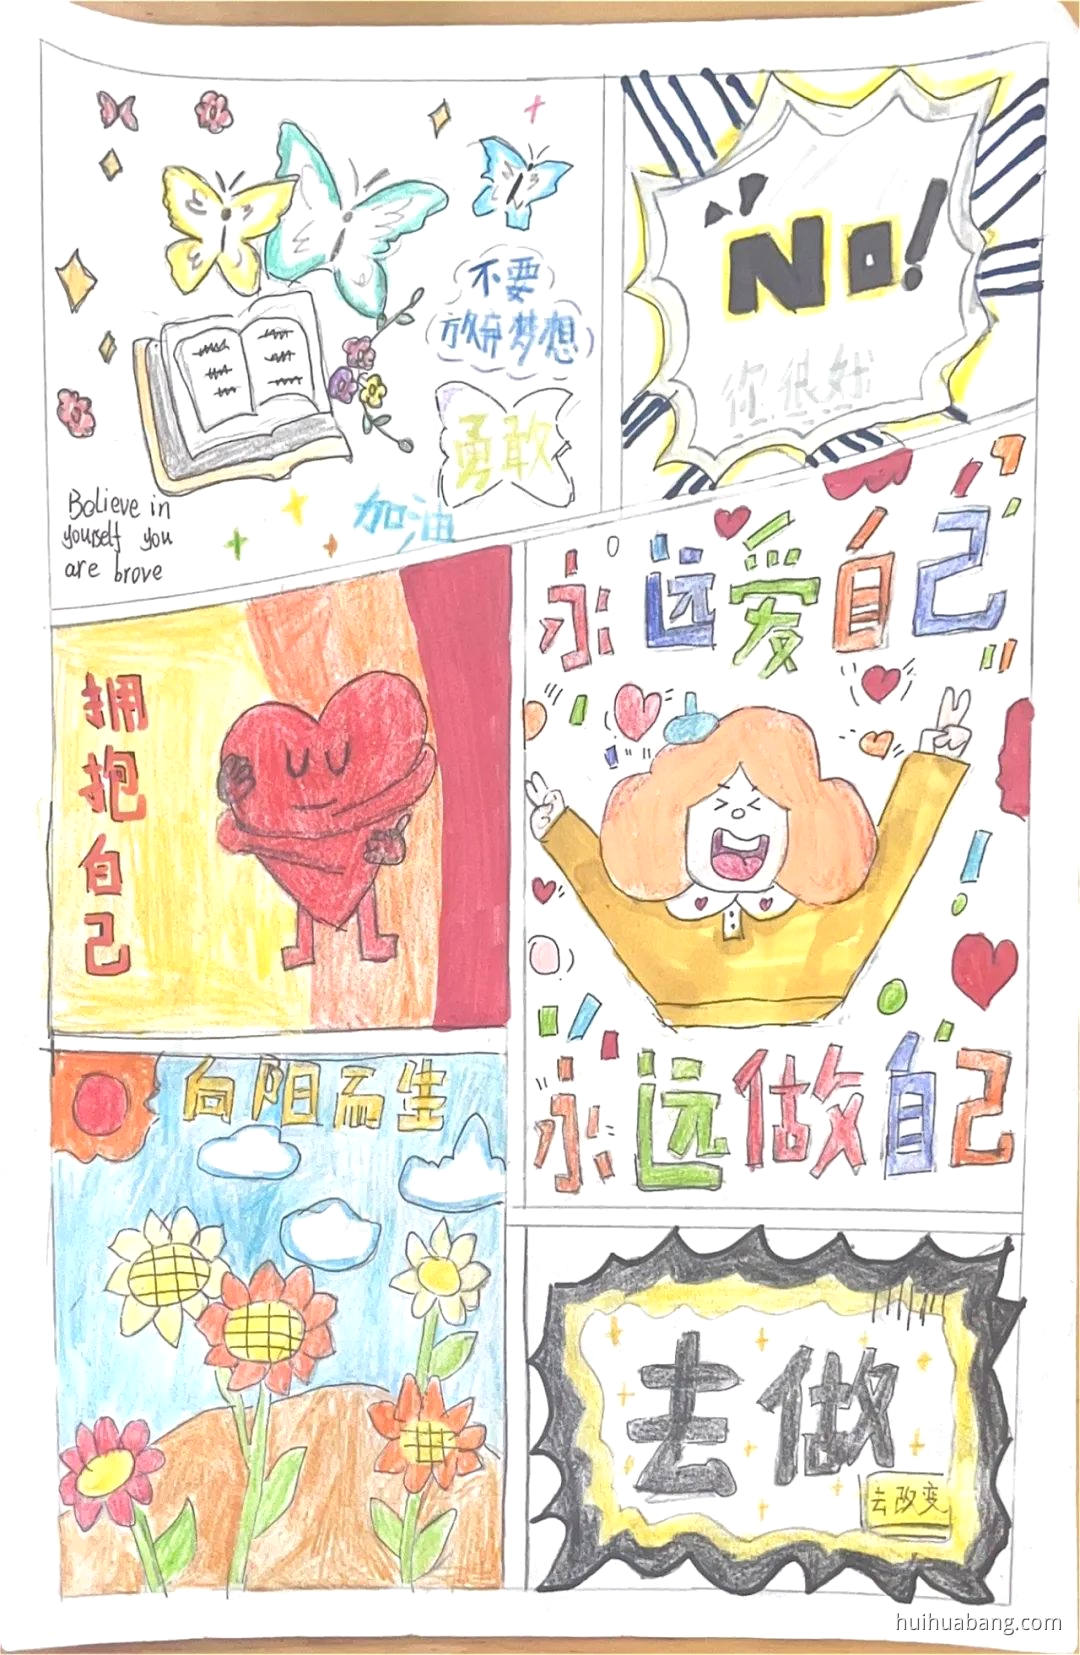 不要
放弃梦想
勇敢
加油
Bolieve in
yourself you
are brove
No!
你很好
拥抱自己
永远爱自己
永远做自己
向阳而生
去做
去改变
huihuabang.com